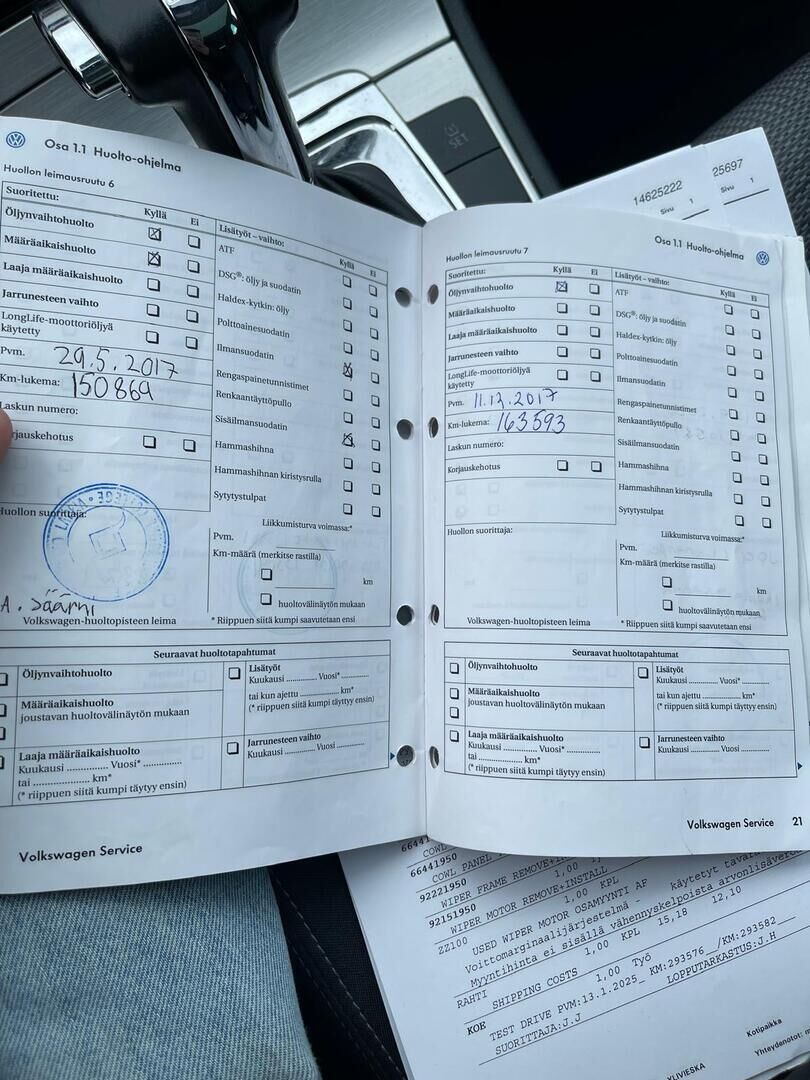 SET
14625222
25697
Sivu 1
Sivu 1
Osa 1.1 Huolto-ohjelma
Huollon leimausruutu 6
Suoritettu: Kyllä Ei
Öljynvaihtohuolto
Määräaikaishuolto
Laaja määräaikaishuolto
Jarrunesteen vaihto
LongLife-moottoriöljyä
käytetty
Pvm. 29.5.2017
Km-lukema: 150869
Laskun numero:
rjauskehotus
Huollon suorittaja:
A. Säärni
Volkswagen-huoltopisteen leima
Lisätyöt – vaihto: Kyllä Ei
ATF
DSG®: öljy ja suodatin
Haldex-kytkin: öljy
Polttoainesuodatin
Ilmansuodatin
Rengaspainetunnistimet
Renkaantäyttöpullo
Sisäilmansuodatin
Hammashihna
Hammashihnan kiristysrulla
Sytytystulpat
Liikkumisturva voimassa:*
Pvm.
Km-määrä (merkitse rastilla)
km
huoltovälinäytön mukaan
* Riippuen siitä kumpi saavutetaan ensi
Seuraavat huoltotapahtumat
Öljynvaihtohuolto
Määräaikaishuolto
joustavan huoltovälinäytön mukaan
Laaja määräaikaishuolto
Kuukausi ............. Vuosi* ............
tai .................. km*
(* riippuen siitä kumpi täytyy ensin)
Lisätyöt
Kuukausi ............ Vuosi* ............
tai kun ajettu ............ km*
(* riippuen siitä kumpi täytyy ensin)
Jarrunesteen vaihto
Kuukausi ............ Vuosi ............
Volkswagen Service
Osa 1.1 Huolto-ohjelma
Huollon leimausruutu 7
Suoritettu: Kyllä Ei
Öljynvaihtohuolto
Määräaikaishuolto
Laaja määräaikaishuolto
Jarrunesteen vaihto
LongLife-moottoriöljyä
käytetty
Pvm. 11.12.2017
Km-lukema: 163593
Laskun numero:
Korjauskehotus
Huollon suorittaja:
Volkswagen-huoltopisteen leima
Lisätyöt – vaihto: Kyllä Ei
ATF
DSG®: öljy ja suodatin
Haldex-kytkin: öljy
Polttoainesuodatin
Ilmansuodatin
Rengaspainetunnistimet
Renkaantäyttöpullo
Sisäilmansuodatin
Hammashihna
Hammashihnan kiristysrulla
Sytytystulpat
Liikkumisturva voimassa:*
Pvm.
Km-määrä (merkitse rastilla)
km
huoltovälinäytön mukaan
* Riippuen siitä kumpi saavutetaan ensi
Seuraavat huoltotapahtumat
Öljynvaihtohuolto
Määräaikaishuolto
joustavan huoltovälinäytön mukaan
Laaja määräaikaishuolto
Kuukausi ............. Vuosi* ............
tai .................. km*
(* riippuen siitä kumpi täytyy ensin)
Lisätyöt
Kuukausi ............ Vuosi* ............
tai kun ajettu ............ km*
(* riippuen siitä kumpi täytyy ensin)
Jarrunesteen vaihto
Kuukausi ............ Vuosi ............
Volkswagen Service 21
66441950
COWL PANEL
92221950
WIPER FRAME REMOVE+IN
92151950 1,00
WIPER MOTOR REMOVE+INSTALL
ZZ100 1,00 KPL
USED WIPER MOTOR OSAMYYNTI AF
Voittomarginaalijärjestelmä - käytetyt tavar
Myyntihinta ei sisällä vähennyskelpoista arvonlisävero
1,00 KPL 15,18 12,10
RAHTI
SHIPPING COSTS
KOE 1,00 Työ
TEST DRIVE PVM:13.1.2025_ KM:293576__/KM:293582__
SUORITTAJA:J.J LOPPUTARKASTUS:J.H
Kotipaikka
YLIVIESKA Yhteydenotot: m